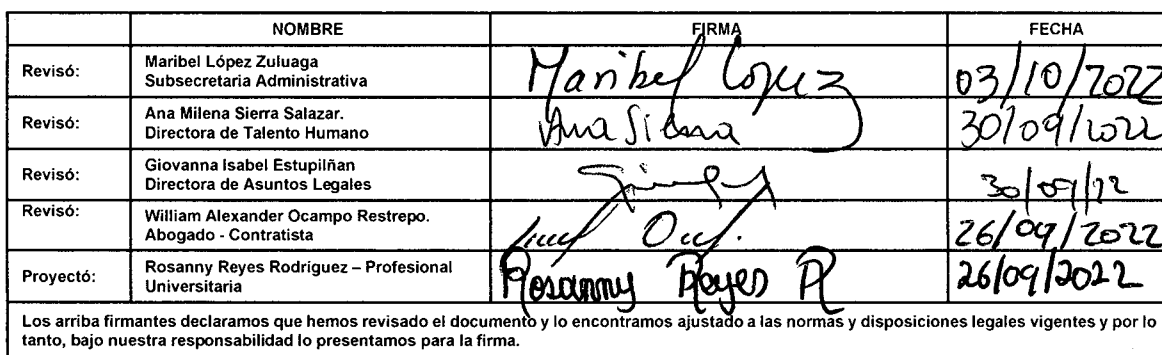 NOMBRE FIRMA FECHA
Revisó: Maribel López Zuluaga
Subsecretaria Administrativa Maribel López 03/10/2022
Revisó: Ana Milena Sierra Salazar.
Directora de Talento Humano Ana Sierra 30/09/2022
Revisó: Giovanna Isabel Estupiñan
Directora de Asuntos Legales 30/09/22
Revisó: William Alexander Ocampo Restrepo.
Abogado - Contratista 26/09/2022
Proyectó: Rosanny Reyes Rodríguez – Profesional
Universitaria Rosanny Reyes R 26/09/2022
Los arriba firmantes declaramos que hemos revisado el documento y lo encontramos ajustado a las normas y disposiciones legales vigentes y por lo
tanto, bajo nuestra responsabilidad lo presentamos para la firma.